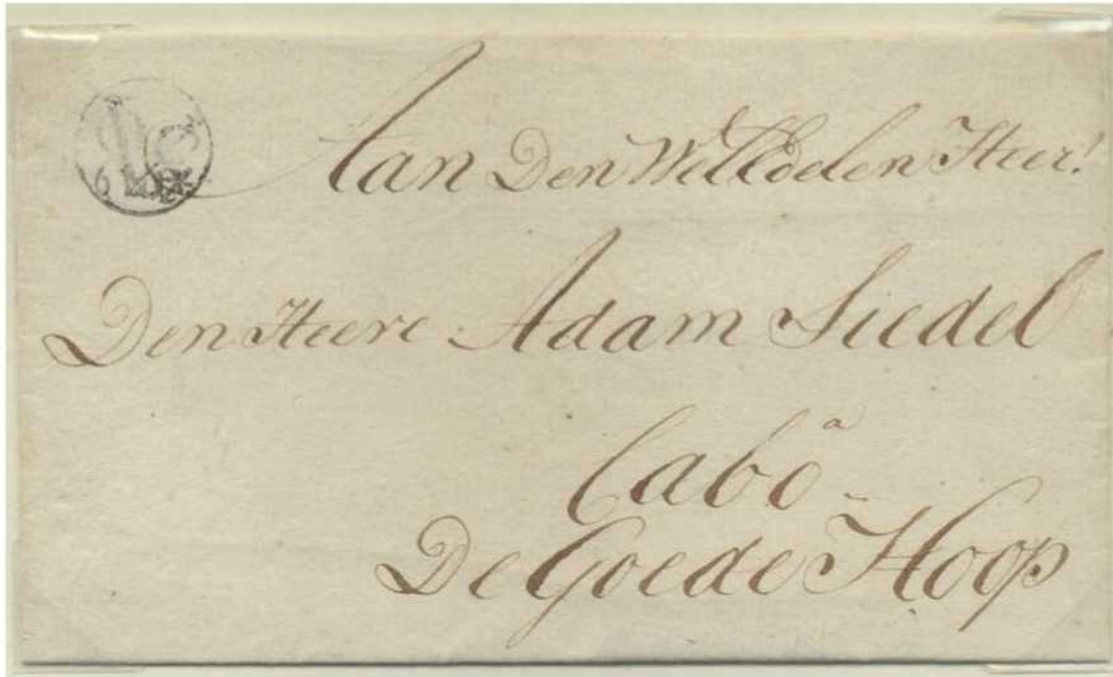 Aan Den WelEdelen Heer!
Den Heere Adam Siedel
Cabo a
De Goede Hoop